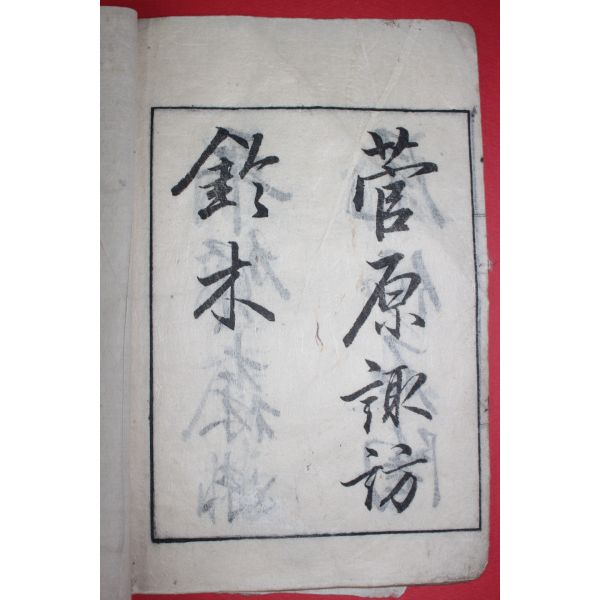 菅原諏訪
鈴木